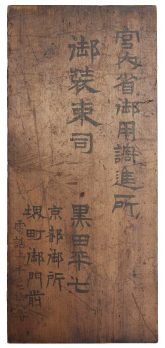 宮内省御用調進所
御装束司
黒田平七
京都御所
堺町御門前